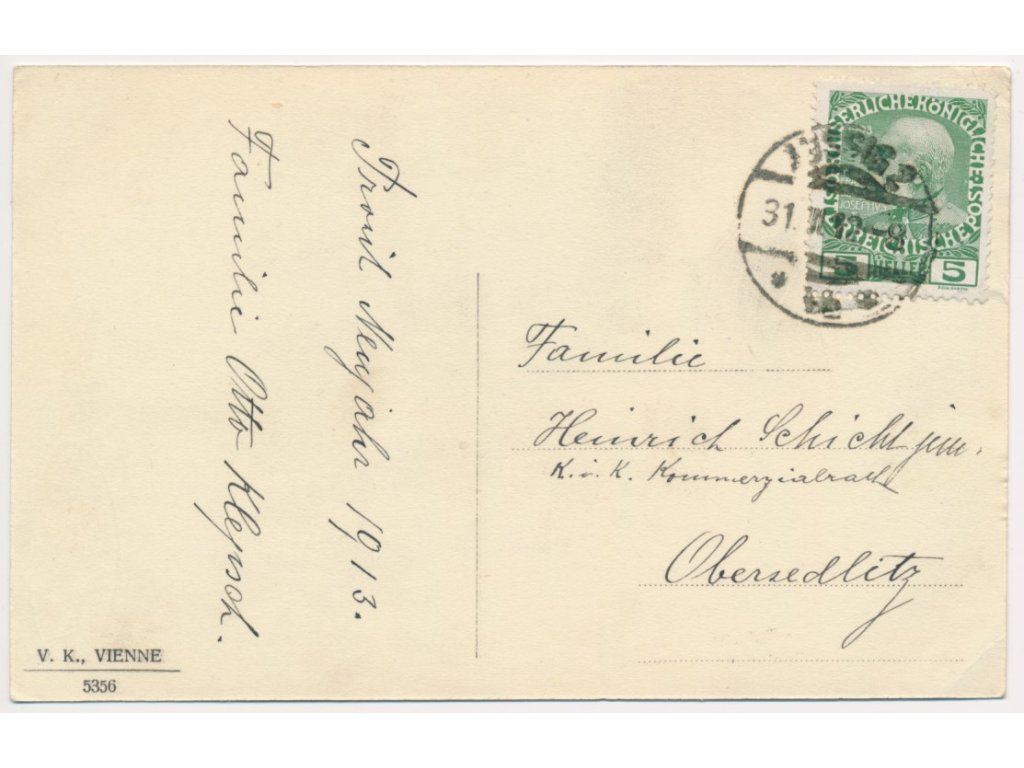 Prosit Neujahr 1913.
Familie Otto Klepsch.
V. K., VIENNE
5356
KAISERLICHE KÖNIGLICHE
ÖSTERREICHISCHE POST
5 HELLER 5
31. XII 12-9
Familie
Heinrich Schicht jun.
K. u. K. Kommerzialrath
Obersedlitz